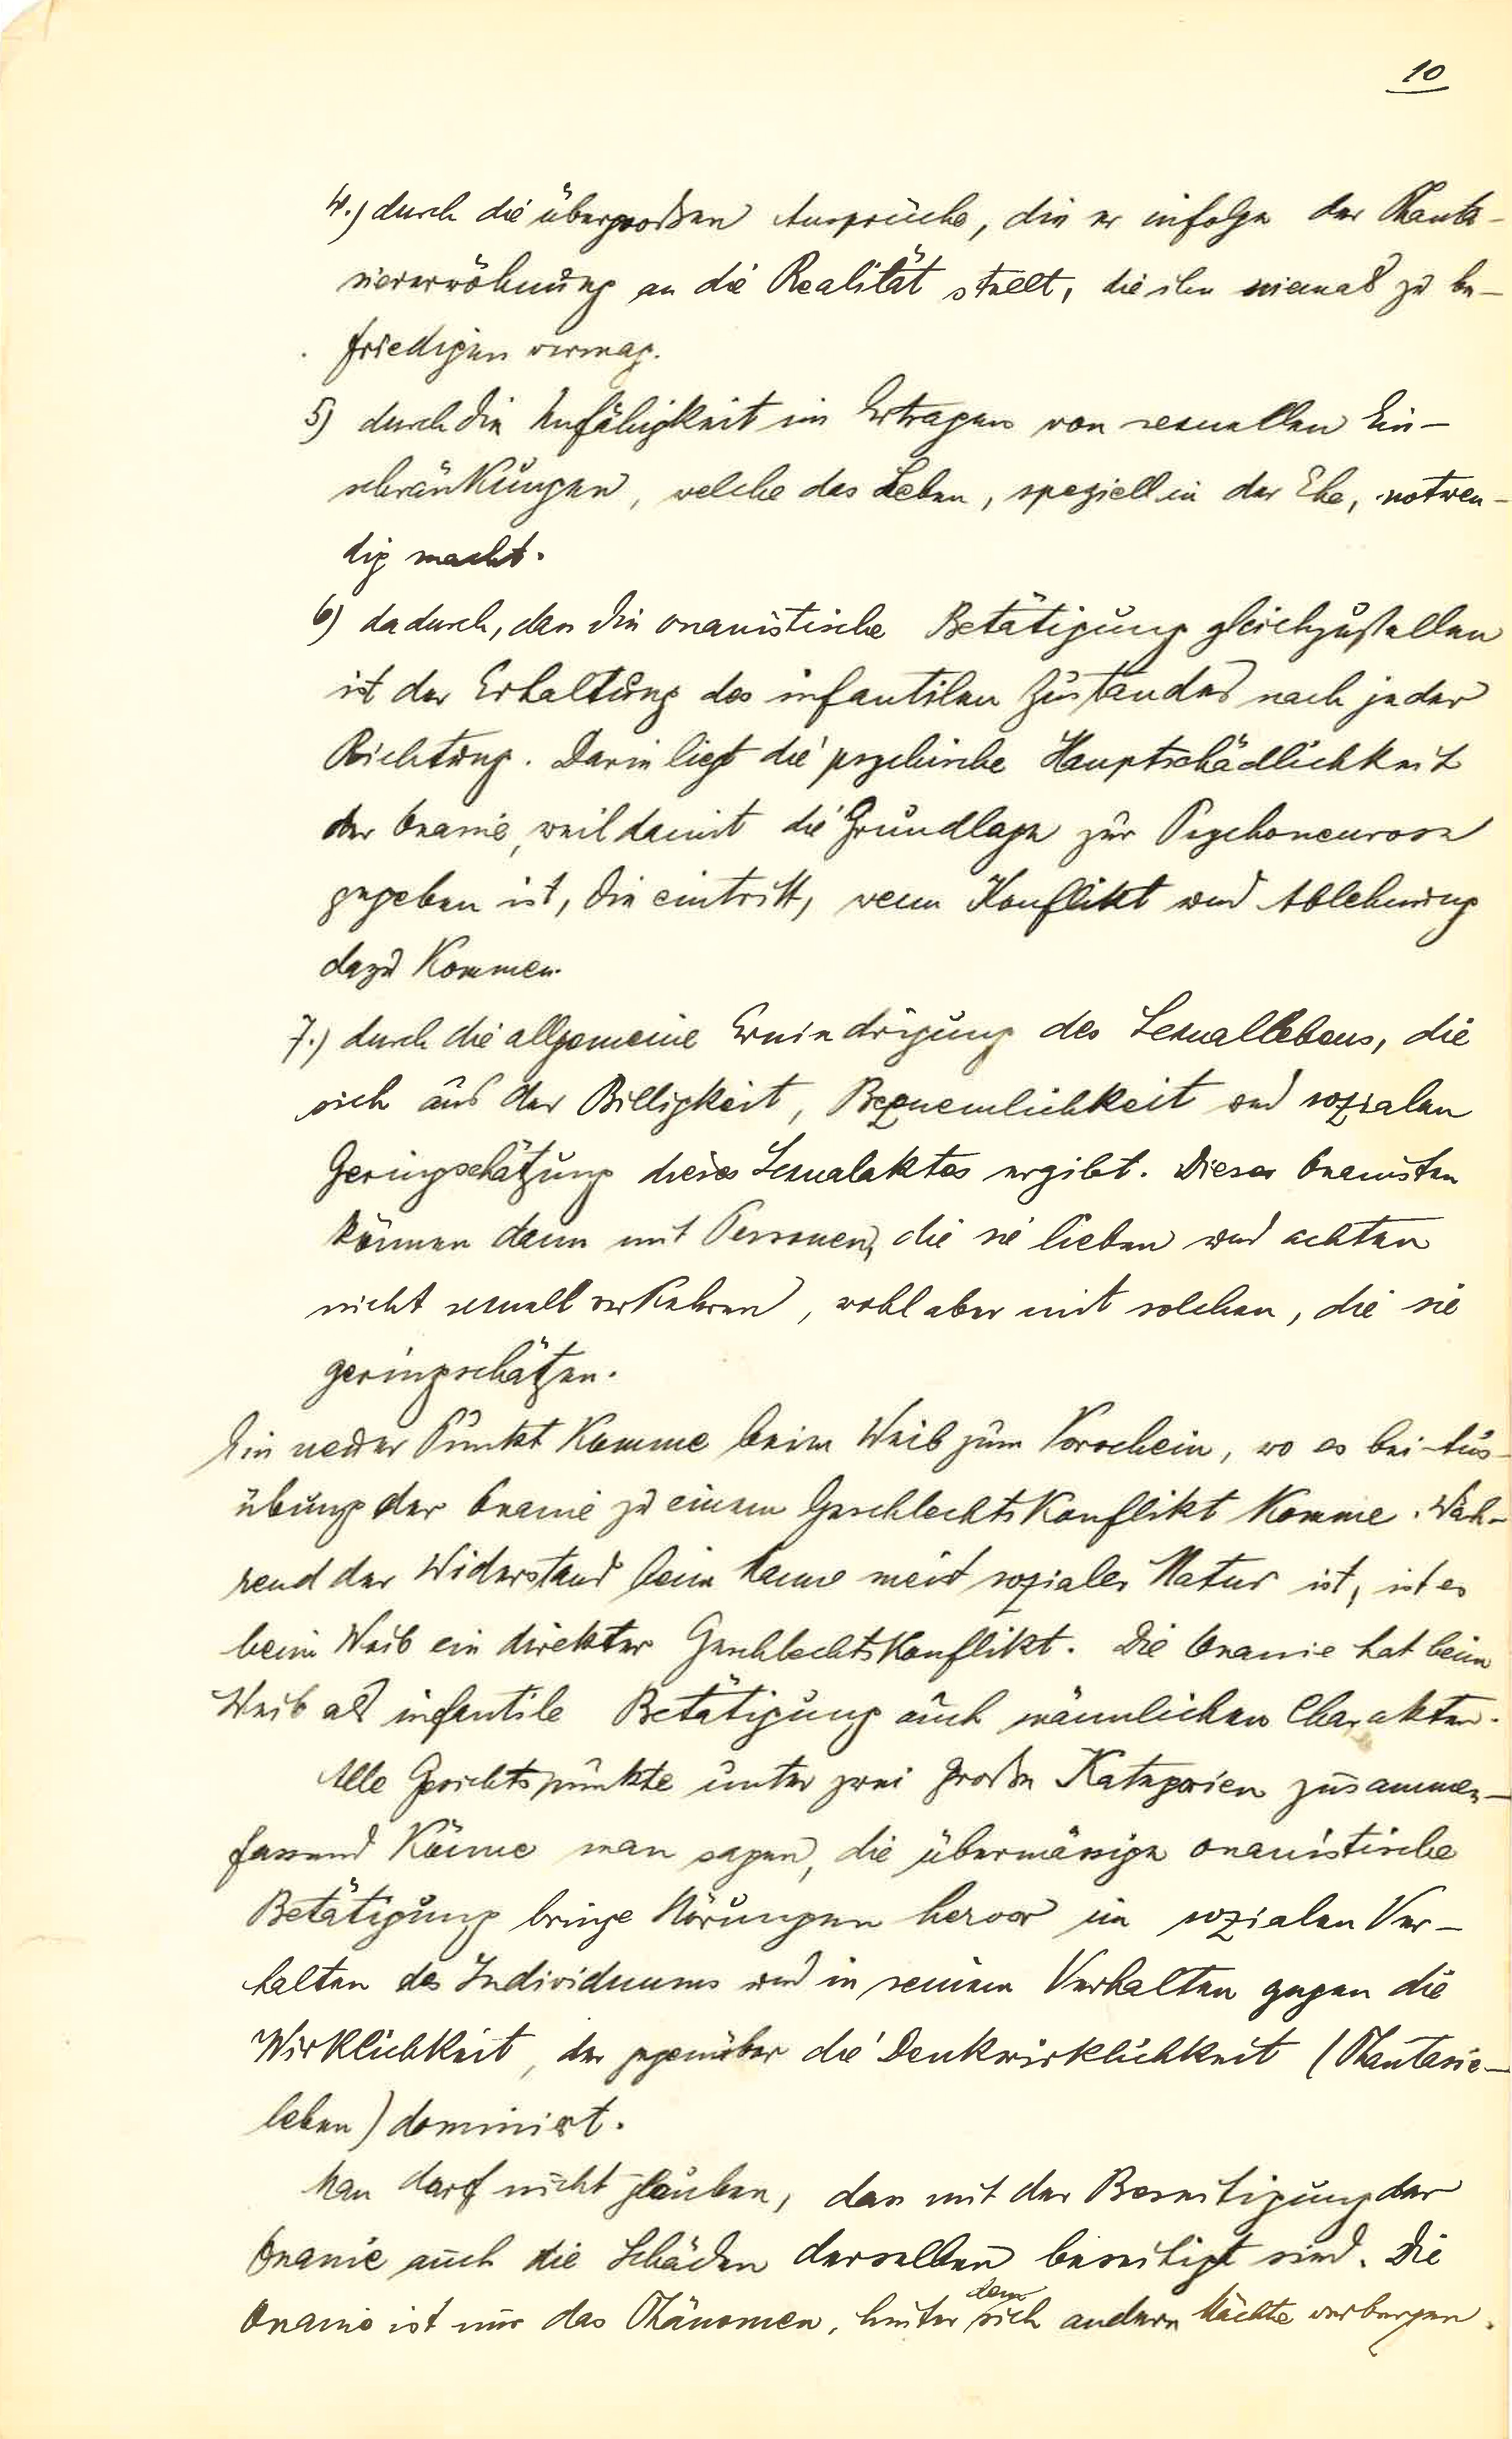 10
4.) durch die übergroßen Ansprüche, die er infolge der Phanta-
sieverwöhnung an die Realität stellt, die ihn niemals zu be-
friedigen vermag.
5) durch die Unfähigkeit im Ertragen von sexuellen Ein-
schränkungen, welche das Leben, speziell in der Ehe, notwen-
dig macht.
6) dadurch, dass die onanistische Betätigung gleichzustellen
ist der Erhaltung des infantilen Zustandes nach jeder
Richtung. Darin liegt die psychische Hauptschädlichkeit
der Onanie, weil damit die Grundlage zur Psychoneurose
gegeben ist, die eintritt, wenn Konflikt und Ablehnung
dazu kommen.
7.) durch die allgemeine Erniedrigung des Sexuallebens, die
sich aus der Billigkeit, Bequemlichkeit und sozialen
Geringschätzung dieses Sexualaktes ergibt. Dieser Onanisten
können dann mit Personen, die sie lieben und achten
nicht sexuell verkehren, wohl aber mit solchen, die sie
geringschätzen.
Ein neuer Punkt komme beim Weib zum Vorschein, wo es bei Aus-
übung der Onanie zu einem Geschlechtskonflikt komme. Wäh-
rend der Widerstand beim Manne meist sozialer Natur ist, ist es
beim Weib ein direkter Geschlechtskonflikt. Die Onanie hat beim
Weib als infantile Betätigung auch männlichen Charakter.
Alle Gesichtspunkte unter zwei große Kategorien zusammen-
fassend könne man sagen, die übermässige onanistische
Betätigung bringe Störungen hervor im sozialen Ver-
halten des Individuums und in seinem Verhalten gegen die
Wirklichkeit, der gegenüber die Denkwirklichkeit (Phantasie-
leben) dominiert.
Man darf nicht glauben, dass mit der Beseitigung der
Onanie auch die Schäden derselben beseitigt sind. Die
Onanie ist nur das Phänomen, hinter dem sich andere Mächte verbergen.